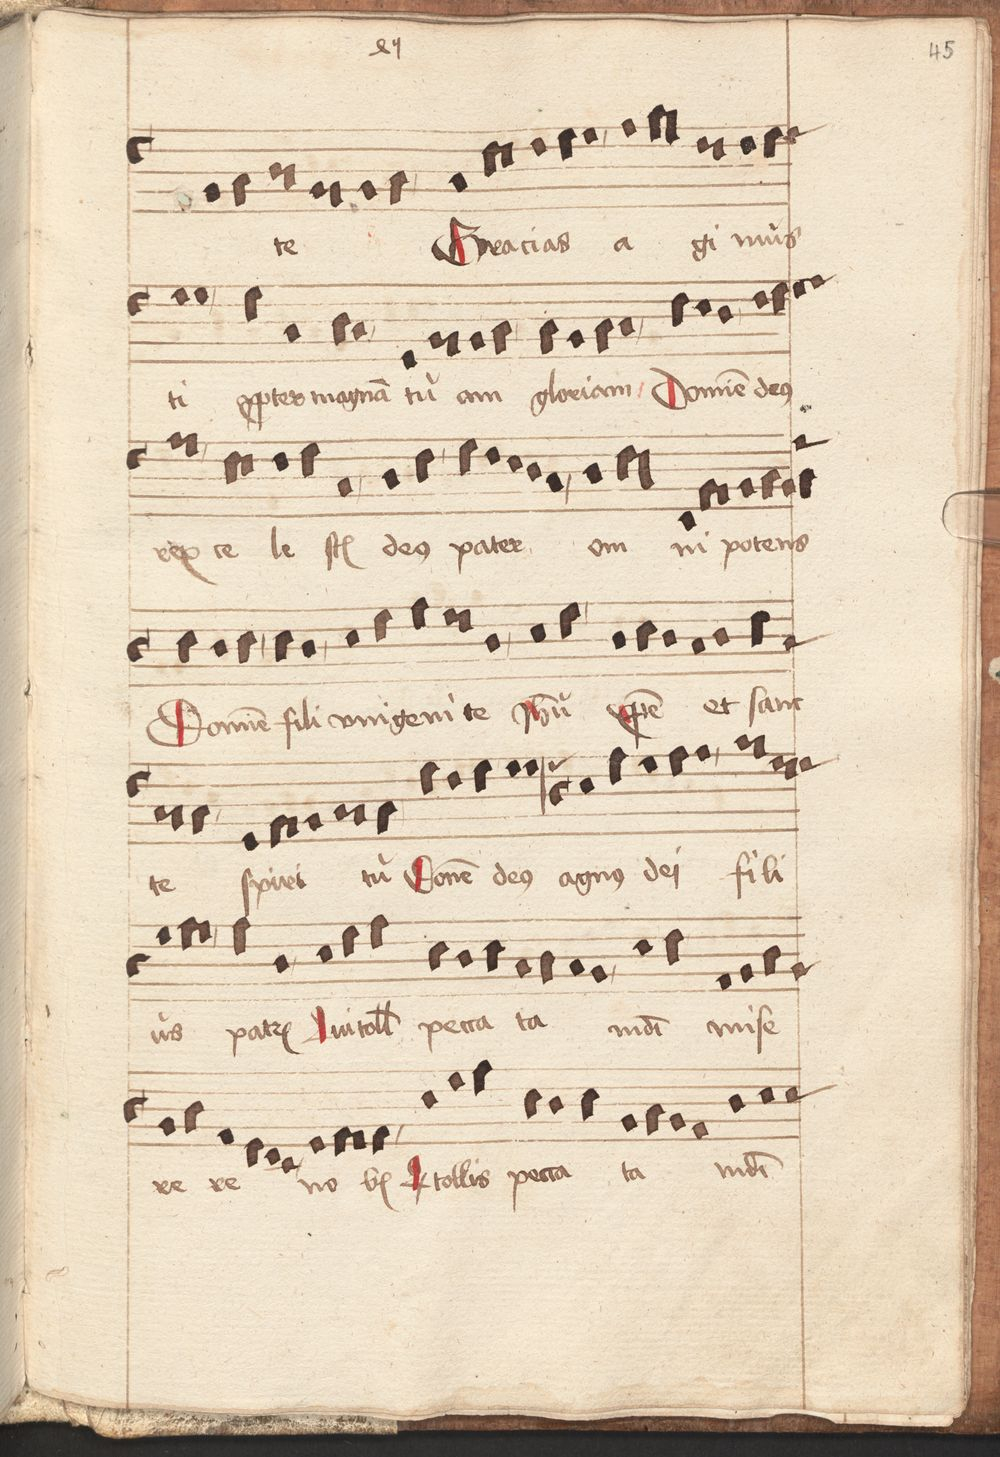 45
te Gracias a gi mus
ti ꝓpter magnā tu am gloriam Domine deꝰ
rex ce le stꝭ deꝰ pater om ni potens
Domine fili vnigeni te Jhu xp̄e et sanc
te spiri tu Done deꝰ agnꝰ dei fili
us patrꝭ Qui toll pecca ta mdi mise
re re no bꝭ Q tollis pecca ta mdi